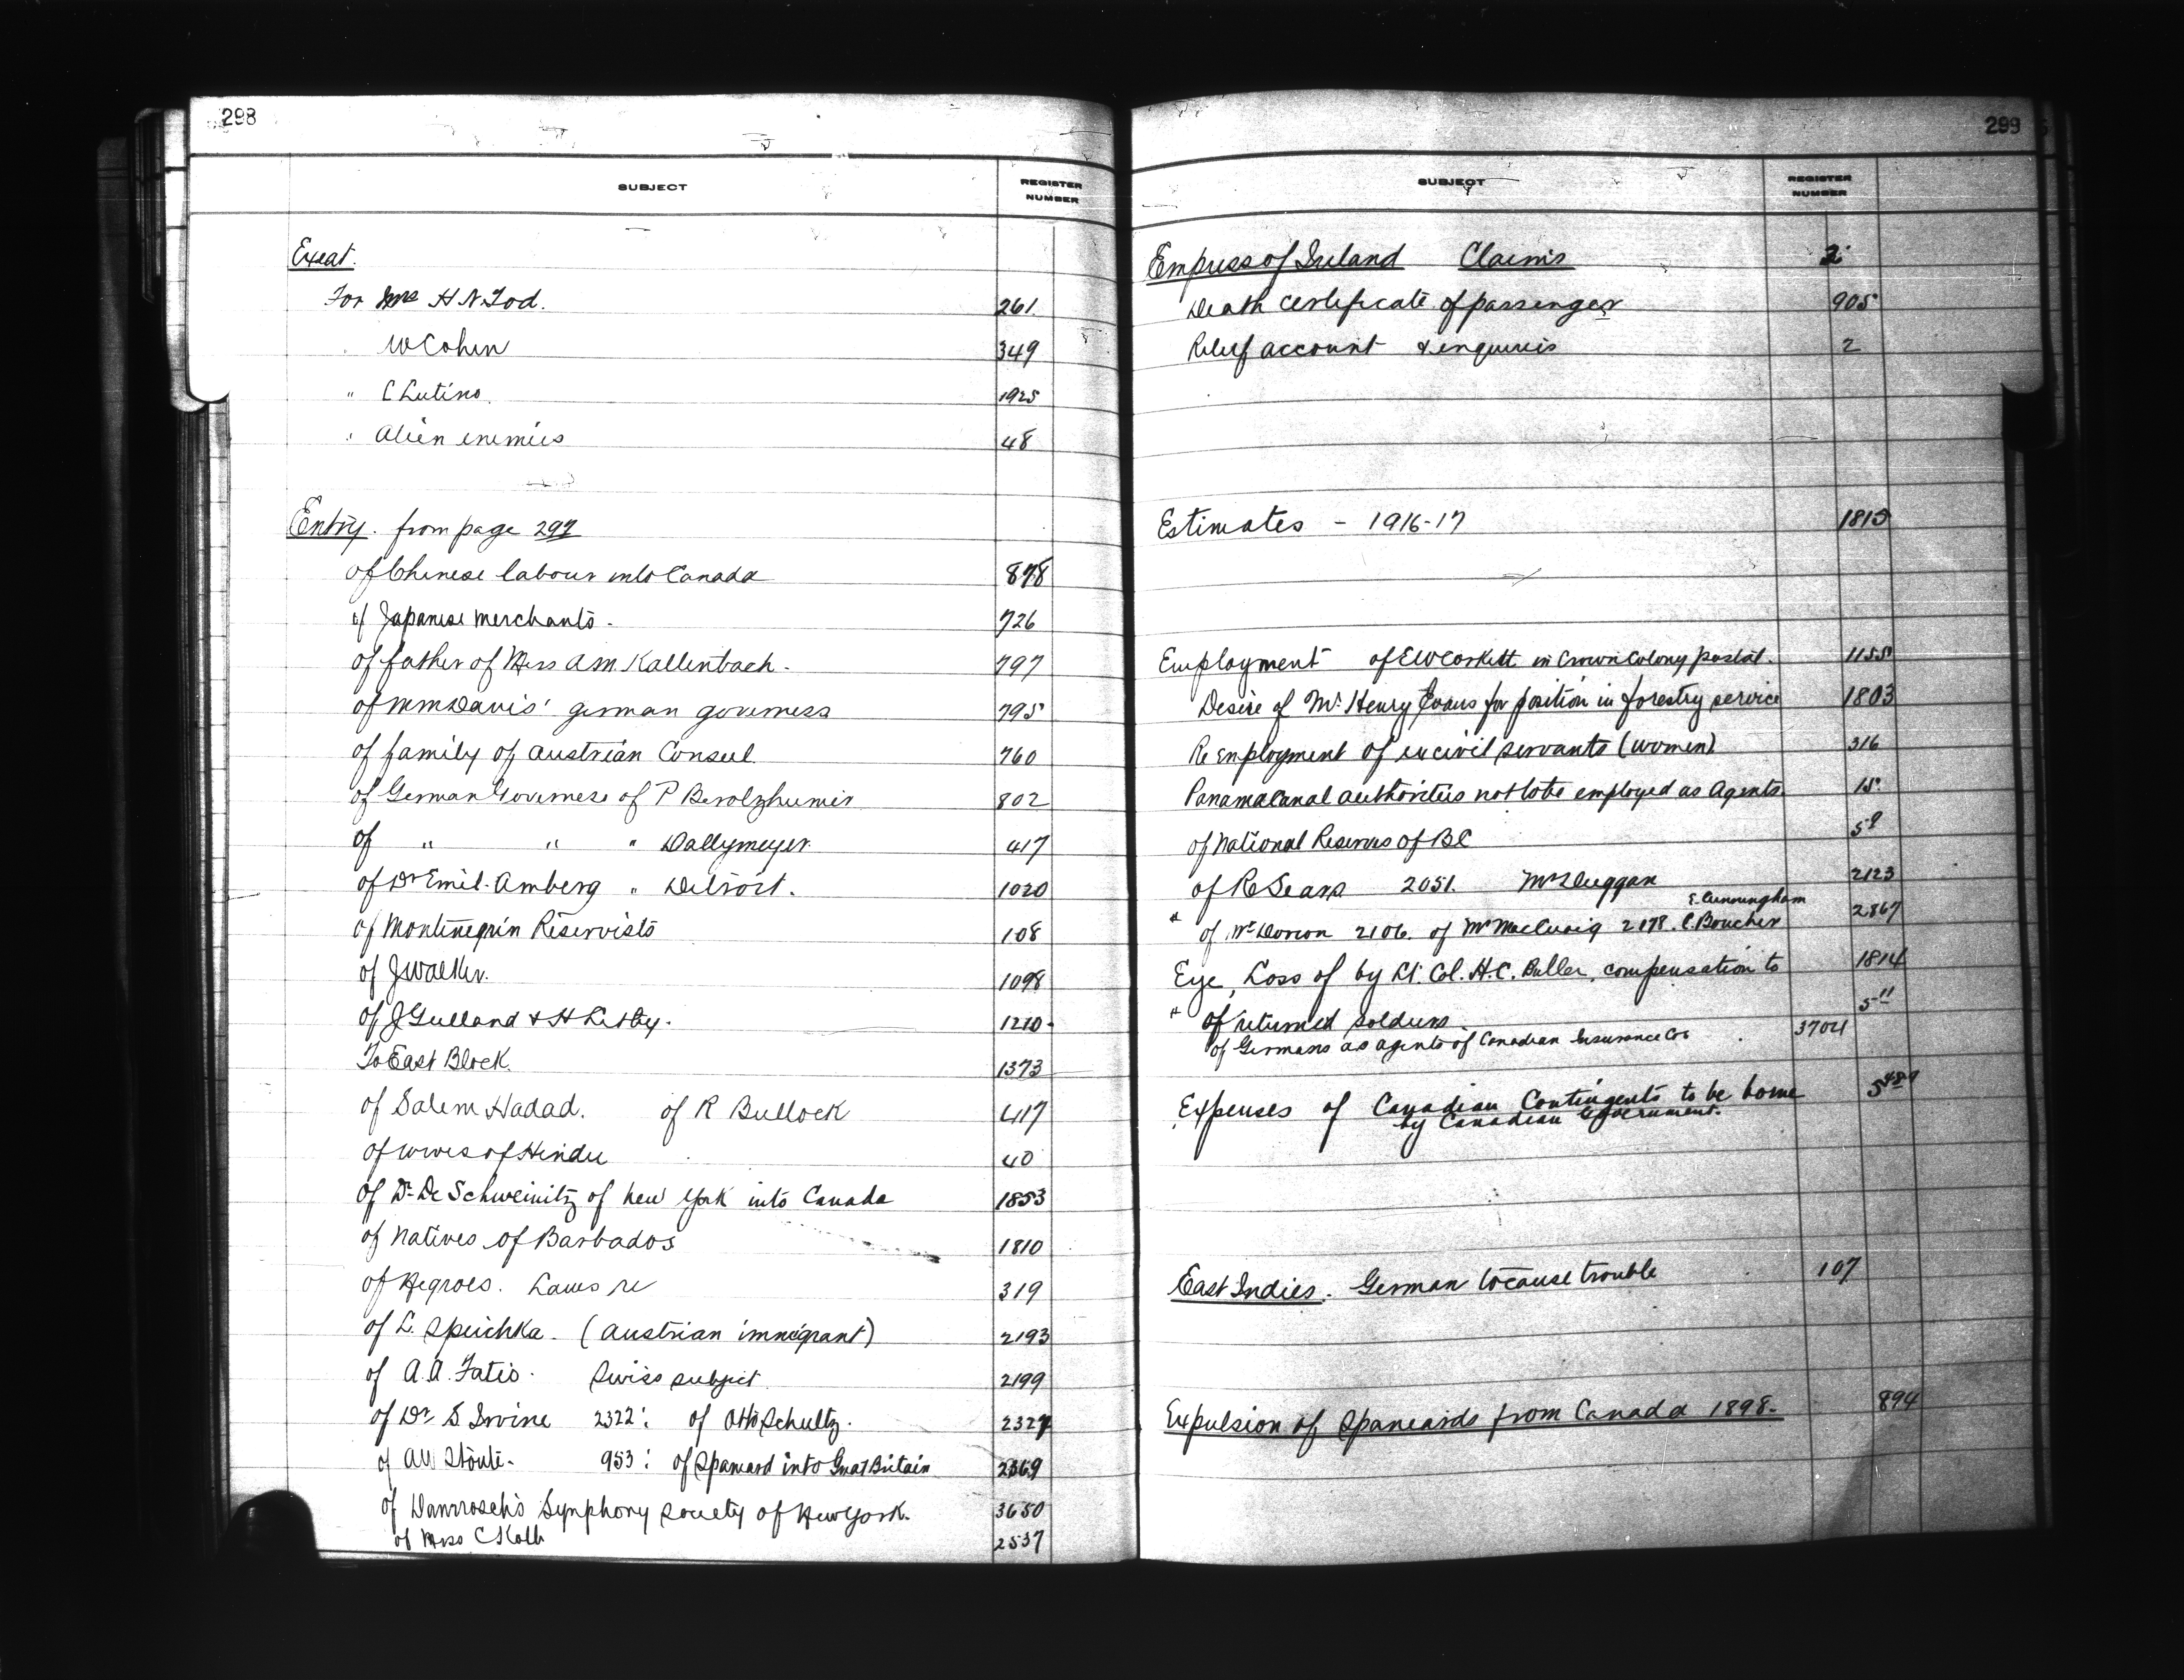 298
SUBJECT REGISTER NUMBER
Exeat.
For Mrs H N Tod. 261
W Cohen 349
" C Lutino. 1925
" Alien enemies 48
Entry. from page 297
of Chinese labour into Canada 878
of Japanese merchants. 726
of father of Miss AM Kallenbach. 797
of MM Davis' german governess 795
of family of Austrian Consul. 760
of German Governess of P Berolzheimer 802
of " " " Dallymeyer 417
of Dr Emil Amberg " Detroit. 1020
of Montenegrin Reservists 108
of J Walker. 1098
of J Gulland & H Kirby. 1210
To East Block. 1373
of Salem Hadad. of R Bullock 417
of wives of Hindu 40
of Dr De Schweinitz of New York into Canada 1853
of Natives of Barbados 1810
of Negroes. Laws re 319
of L. Speichka. (Austrian immigrant) 2193
of A.A. Fatio. Swiss subject. 2199
of Dr S. Irvine 2322: of Otto Schultz. 2327
of AW Stoute. 953: of Spaniard into Great Britain 2369
of Damrosch's Symphony Society of New York. 3650
of Miss C Kolb 2537
299
SUBJECT REGISTER NUMBER
Empress of Ireland Claims 2
Death certificate of passenger 905
Relief account & enquiries 2
Estimates - 1916-17 1815
Employment of EW Corkett in Crown Colony postal. 1155
Desire of Mr Henry Evans for position in forestry service 1803
Re Employment of ex civil servants (women) 316
Panama Canal authorities not to be employed as Agents. 15
of National Reserves of BC 5 9
of R Sears 2051. Mr Duggan 2123
E. Cunningham
" of Mr Dorion 2106. of Mr MacCuaig 2178. C. Boucher 2867
Eye, Loss of by Lt. Col. H.C. Buller, compensation to 1814
" of returned soldiers 5-11
of Germans as agents of Canadian Insurance Cos 3704
Expenses of Canadian Contingents to be borne 5 489
by Canadian Government.
East Indies. German to cause trouble 107
Expulsion of Spaniards from Canada 1898. 894